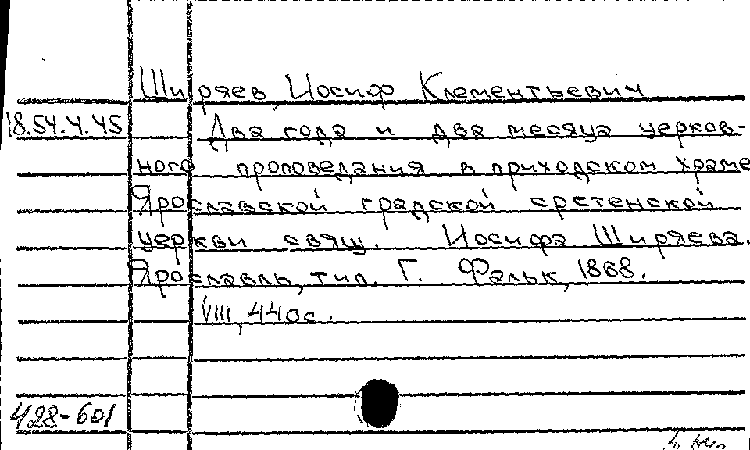 Ширяев, Иосиф Клементьевич
18.54.4.45
Два года и два месяца церков-
ного проповедания в приходском храме
Ярославской градской сретенской
церкви свящ. Иосифа Ширяева.
Ярославль, тип. Г. Фальк, 1868.
VIII, 440с.
428-601